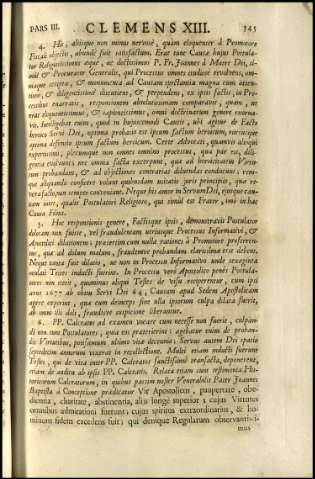 PARS III. CLEMENS XIII. 345
4. His, aliisque non minus nervosè, quàm eloquenter à Promotore
Fiscali objectis, abundè fuit satisfactum. Erat tunc Causæ hujus Postula-
tor Religiosissimus æquè, ac doctissimus P. Fr. Joannes à Matre Dei,
& Procurator Generalis, qui Processus omnes evoluit revolvens, om-
niaque scripta, & monumenta ad Causam spectantia magna cum atten-
tione, & diligentia discutiens, & perpendens, ex ipsis factis, in Pro-
cessibus enarratis, responsionem absolutissimam comparavit, quam, ut
erat eloquentissimus, & sapientissimus, omni doctrinarum genere exorna-
vit. Intelligebat enim, quod in hujusmodi Causis, ubi agitur de factis
heroicis Servi Dei, optima probatio est ipsum factum heroicum, rectaque
quasi definitio ipsum factum heroicum. Certè Advocati, quantùm alioqui
expertissimi, plerumque non omnes omnino processus, qua par est, dili-
gentia evolvunt; nec omnia facta excerpunt, quæ ad heroicitatem Virtu-
tum probandam, & ad objectiones contrarias diluendas conducunt;
que aliquando conficere volunt quibusdam mutatis juris principiis, quæ re-
vera factis, non tempus conveniunt. Neque his amor in Servum Dei, ejusque cau-
sam inest, qualis Postulatori Religioso, qui simul est Frater, imò in hac
Causa Filius.
5. Hac responsionis genere, Factisque ipsis, demonstravit Postulator
dolosam non fuisse, vel fraudulentam utriusque Processus Informativi, &
Apostolici dilationem; præsertim cum nulla rationes à Promotore profer-
rentur, quæ ad dolum malum, fraudemve probandam
Neque tanta fuit dilatio, ut non in Processu Informativo undè sexaginta
oculati Testes inducti fuerint. In Processu verò Apostolico penès Postula-
torem non stetit, quominus aliqui Testes de visu reciperentur, cum ipsi
anno 1677 ab obitu Servi Dei 64, Causam apud Sedem Apostolicam
agere cæperint, quæ cum deinceps sine ulla ipsorum culpa dilata fuerit,
ab omni illi doli, fraudisve suspicione liberantur.
6. PP. Calceatos ad examen vocare cum necesse non fuerit, culpan-
di non sunt Postulatores, quòd eos præterierint; agitatur enim de probandis
Virtutibus, postremum ultimo vitæ decennio; Servus autem Dei spatio
septendecim annorum vixerat in recollectione. Multi etiam inducti fuerunt
Testes, qui de vita inter PP. Calceatos sanctissimè transacta, deponerent,
etiam de auditu ab ipsis PP. Calceatis. Relata etiam sunt testimonia Hi-
storicorum Calceatorum, in quibus passim noster Venerabilis Pater Joannes
Baptista à Conceptione prædicatur Vir Apostolicus, paupertate, obe-
dientia, charitate, abstinentia, aliis longè superior; cujus Virtutes
omnibus admirationi fuerunt; cujus spiritus extraordinarius, & ho-
minum fidem excedens fuit; qui denique Regularum observantissi-
mus